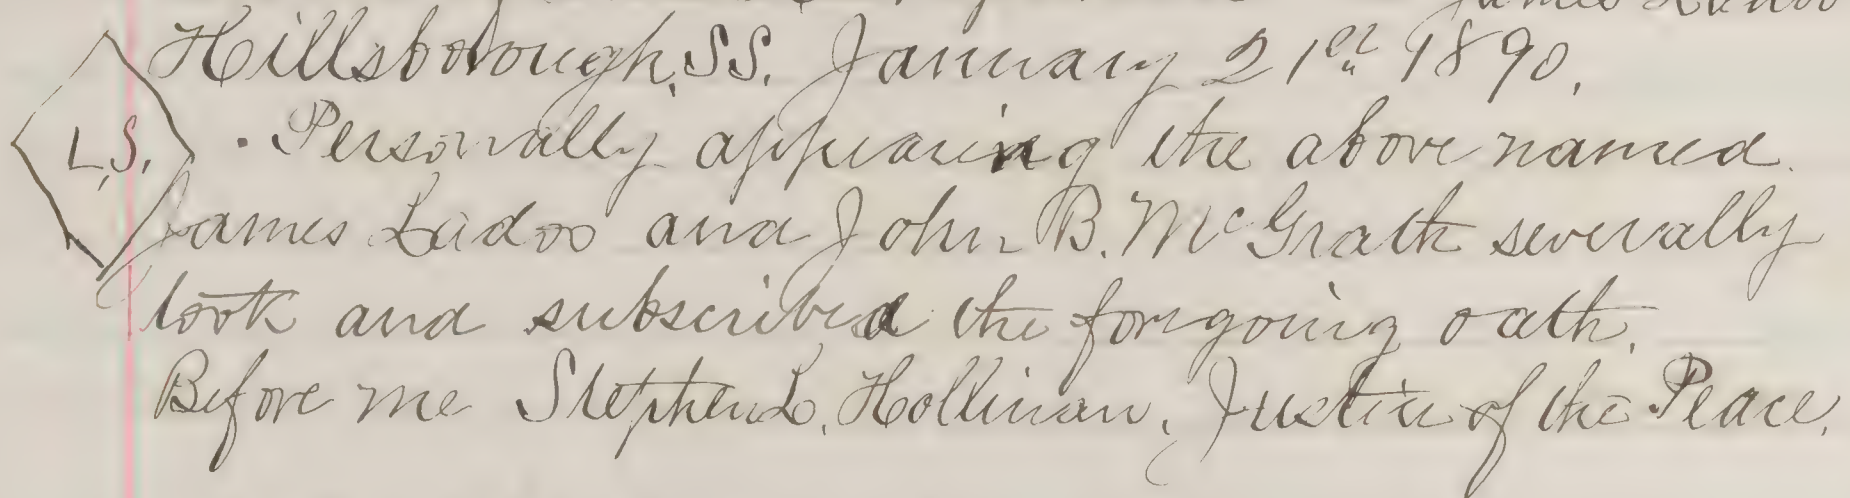 James Lados
Hillsborough, SS. January 21st 1890,
L.S. Personally appearing the above named
James Lados and John B. McGrath severally
took and subscribed the foregoing oath.
Before me Stephen L. Hollinan, Justice of the Peace.